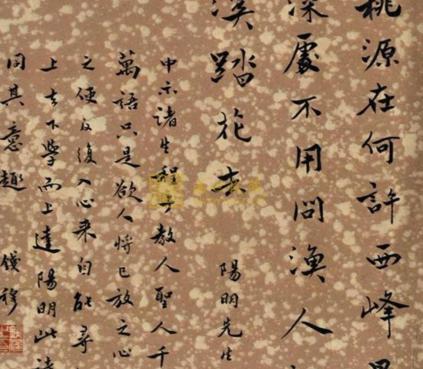 桃源在何許西峰
深處不用問漁人
溪踏花去 陽明先生
中示諸生程子教人聖人千
萬語只是欲人將已放之心
之使反復入心來自能尋
上去下學而上達陽明此詩
同其意趣 錢穆